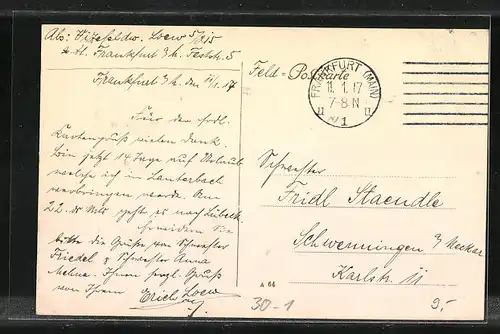 Abs: Vizefeldw. Loew 5/815
z. Zt. Frankfurt a/M. Feststr. 5
Frankfurt a/M. den 11/1. 17
Für den frdl.
Kartengruß vielen Dank.
Bin jetzt 14 Tage auf Urlaub
welche ich in Lauterbach
verbringen werde. Am
22. ds Mts geht es nach Lübeck.
Erwidern Sie
bitte die Grüße von Schwester
Friedel & Schwester Anna
Ihnen herzl. Gruß
von Ihrem Erich Loew
Feld = Postkarte
FRANKFURT (MAIN)
11. 1. 17
7-8 N
1
Schwester
Fridl Staendle
Schwenningen a/Neckar
Karlstr. 11
A 64
30-1
9.-